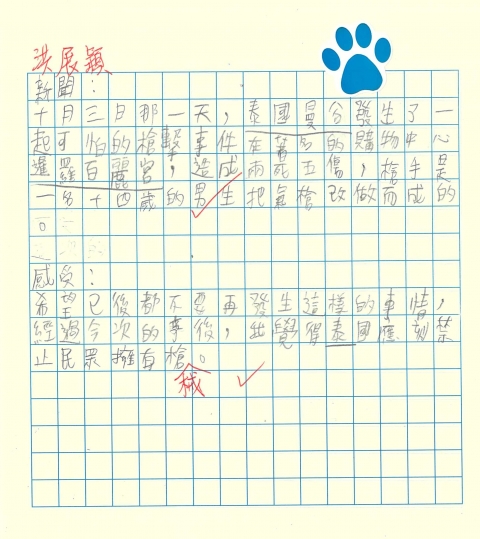 洪展穎
新聞：
十月三日那一天，泰國曼谷發生了一
起可怕的槍擊事件在著名的購物中心
暹羅百麗宮，造成兩死五傷，槍手是
一名十四歲的男生把氣槍改做而成的
。
感受：
希望已後都不要再發生這樣的事情，
經過今次的事後，出覺得泰國應刻禁
止民眾擁有槍。